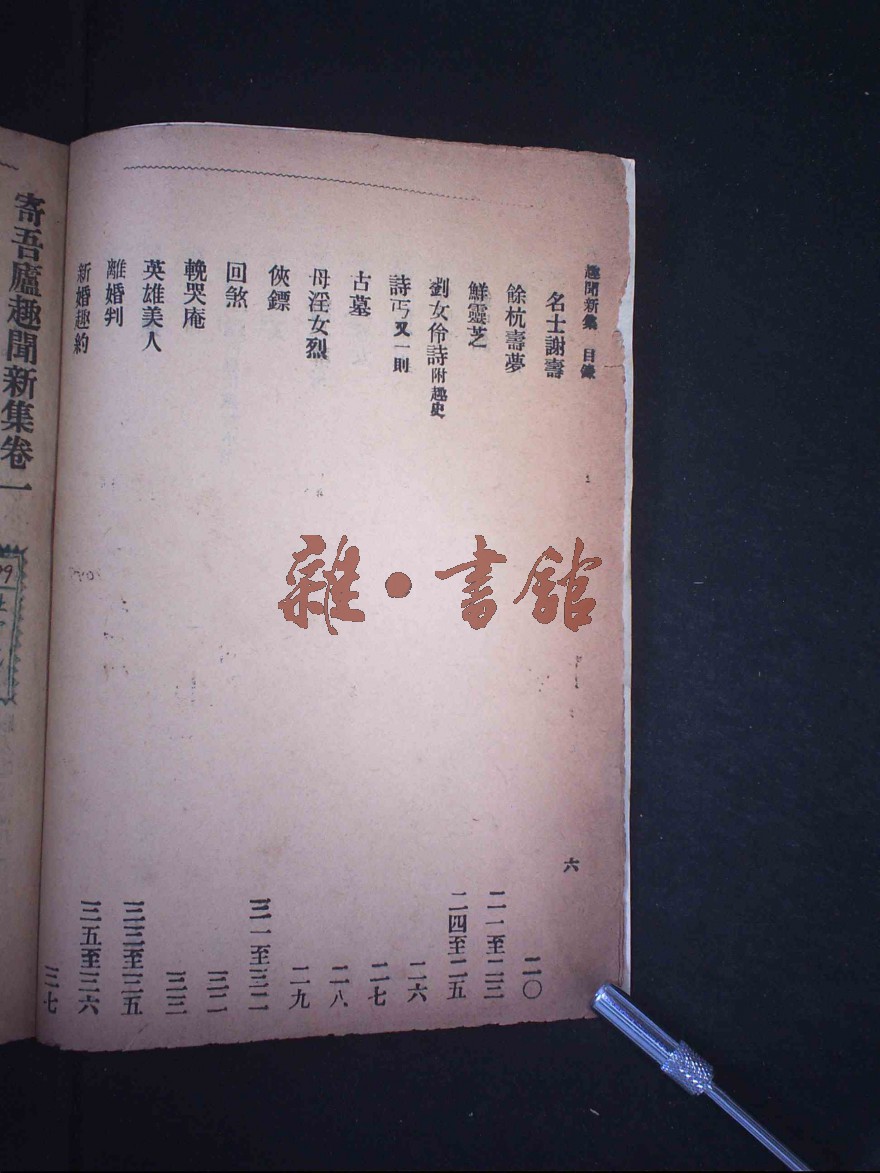 趣聞新集　目錄
六
名士謝壽　二〇
餘杭壽夢　二一至二三
鮮靈芝　二四至二五
劉女伶詩附趣史　二六
詩丐又一則　二七
古墓　二八
母淫女烈　二九
俠鏢　三一至三二
回煞　三二
輓哭庵　三三
英雄美人　三三至三五
離婚判　三五至三六
新婚趣約　三七
寄吾廬趣聞新集卷一
雜·書館